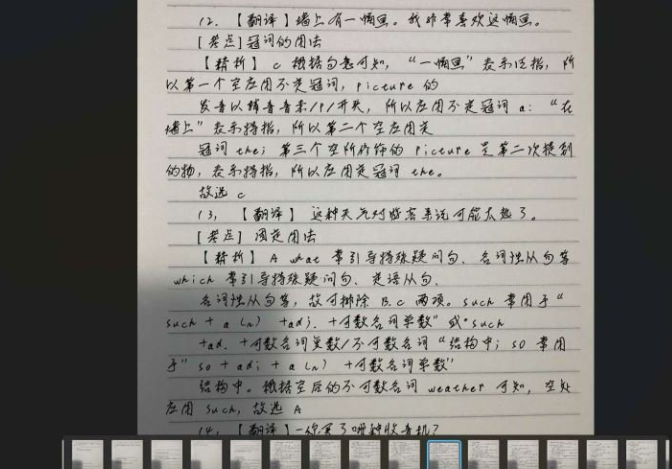 12. 【翻译】墙上有一幅画。我非常喜欢这幅画。
[考点]冠词的用法
【精析】 c 根据句意可知，“一幅画”表示泛指，所
以第一个空应用不定冠词，picture 的
发音以辅音音素/p/开头，所以应用不定冠词 a：“在
墙上”表示特指，所以第二个空应用定
冠词 the；第三个空所修饰的 picture 是第二次提到
的物，表示特指，所以应用定冠词 the。
故选 c
13，【翻译】 这种天气对游客来说可能太热了。
[考点] 固定用法
【精析】 A what 常引导特殊疑问句、名词性从句等
which 常引导特殊疑问句、定语从句、
名词性从句等，故可排除 B.c 两项。such 常用于“
such + a (n) +adj. +可数名词单数”或“such
+ad. +可数名词复数/不可数名词“结构中；so 常用
于” so + adj + a (n) +可数名词单数”
结构中。根据空后的不可数名词 weather 可知，空处
应用 such，故选 A
14，【翻译】-你买了哪种收音机？